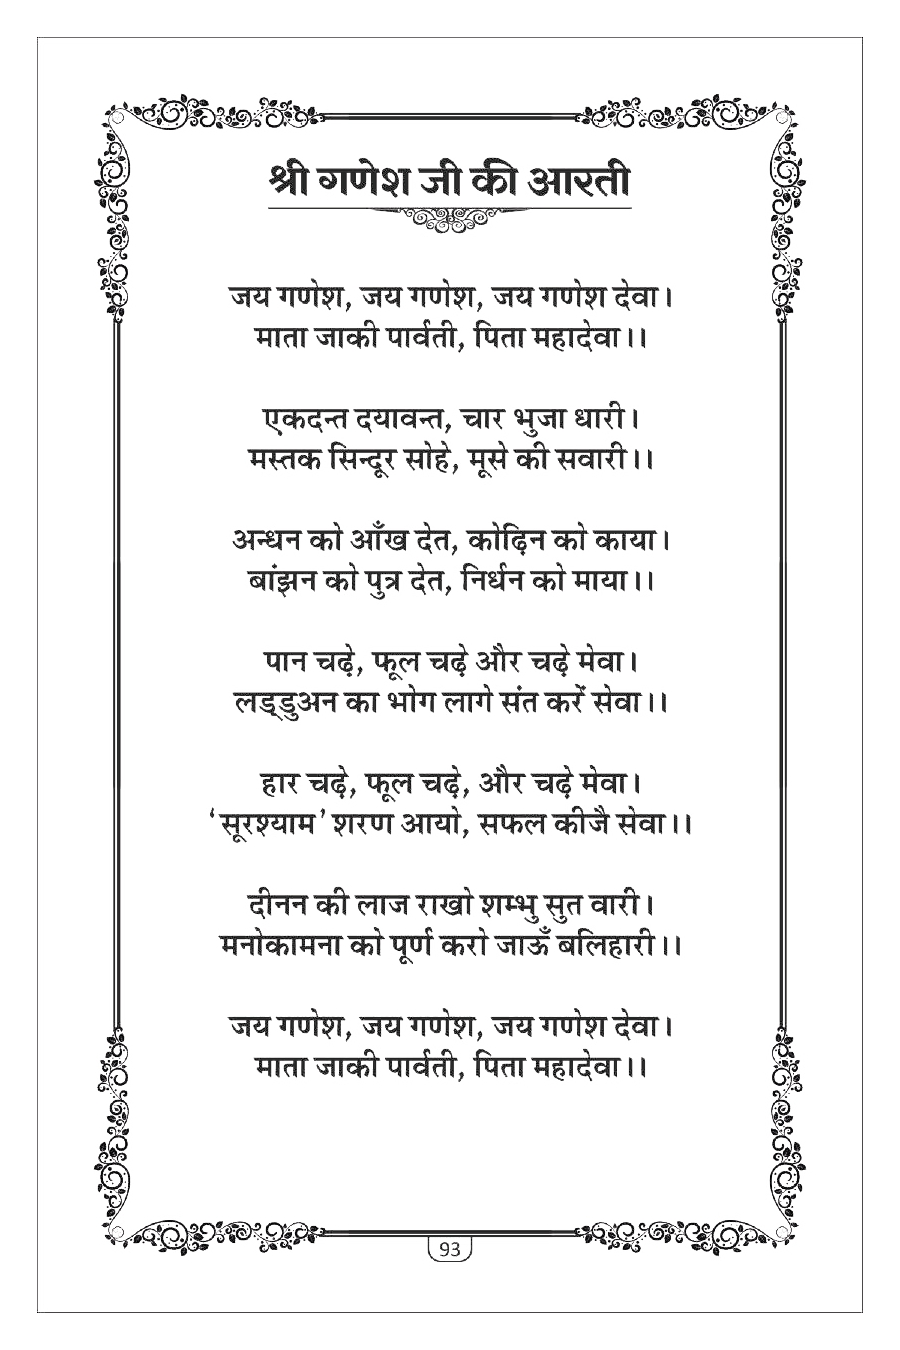 श्री गणेश जी की आरती
जय गणेश, जय गणेश, जय गणेश देवा।
माता जाकी पार्वती, पिता महादेवा।।
एकदन्त दयावन्त, चार भुजा धारी।
मस्तक सिन्दूर सोहे, मूसे की सवारी।।
अन्धन को आँख देत, कोढ़िन को काया।
बांझन को पुत्र देत, निर्धन को माया।।
पान चढ़े, फूल चढ़े और चढ़े मेवा।
लड्डुअन का भोग लागे संत करें सेवा।।
हार चढ़े, फूल चढ़े, और चढ़े मेवा।
‘सूरश्याम’ शरण आयो, सफल कीजै सेवा।।
दीनन की लाज राखो शम्भु सुत वारी।
मनोकामना को पूर्ण करो जाऊँ बलिहारी।।
जय गणेश, जय गणेश, जय गणेश देवा।
माता जाकी पार्वती, पिता महादेवा।।
93